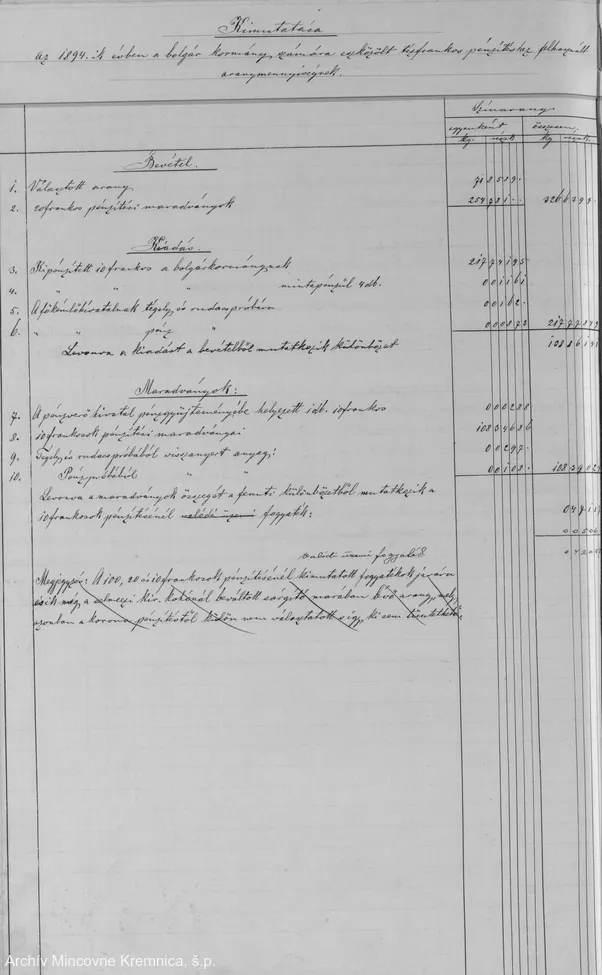 Kimutatása
Az 1894. ik évben a bolgár kormány számára eszközölt tizfrankos pénzitéshez felhasznált
aranymennyiségnek.
Szinarany
egyenként összesen
kg. kg
Bevétel.
1. Választott arany 718519.
2. 20frankos pénzitési maradványok 254781 326
Kiadás.
3. Kipénzitett 10frankos a bolgárkormánynak 21774195
4. " " " " mintapénzül 4 db. 001161
5. A főkémlőhivatalnak tégely és rudacspróbára 00162
6. " " pénz " 000873
Levonva a kiadást a bevételből mutatkozik különbözet
Maradványok:
7. A pénzverő hivatal pénzgyüjteményébe helyezett 1 db. 10frankos 000288
8. 10frankosok pénzitési maradványai 10834686
9. Tégely és rudacspróbából visszanyert anyag: 00297
10. Pénzpróbából " " 00108
Levonva a maradványok összegét a fenti különbözetből mutatkozik a
10frankosok pénzitésénél valódi üzemi fogyaték:
valódi üzemi fogyaték
Megjegyzés: A 100, 20 és 10frankosok pénzitésénél kimutatott fogyatékok javára
esik még a selmeczi kir. kohónál beváltott marában levő arany, mely
azonban a korona pénzitéstől külön nem választatott s igy ki sem tüntethető.
Archív Mincovne Kremnica, š.p.